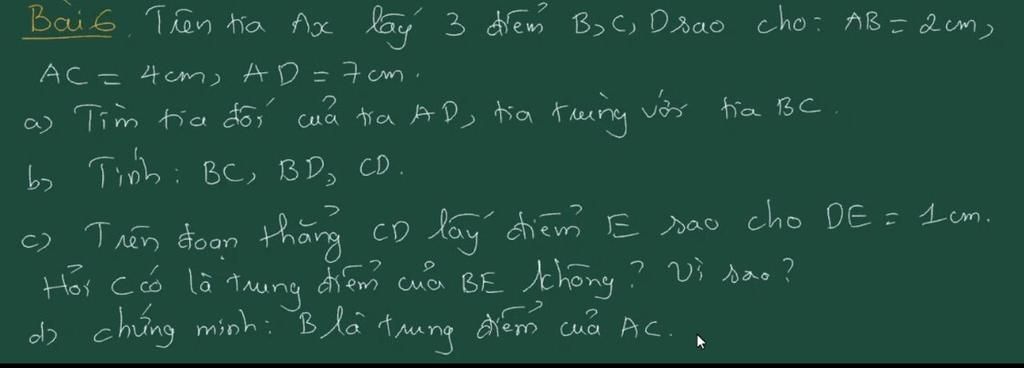 Bài 6. Trên tia Ax lấy 3 điểm B, C, D sao cho: AB = 2cm,
AC = 4cm, AD = 7cm.
a) Tìm tia đối của tia AD, tia trùng với tia BC.
b) Tính: BC, BD, CD.
c) Trên đoạn thẳng CD lấy điểm E sao cho DE = 1cm.
Hỏi C có là trung điểm của BE không? Vì sao?
d) chứng minh: B là trung điểm của AC.